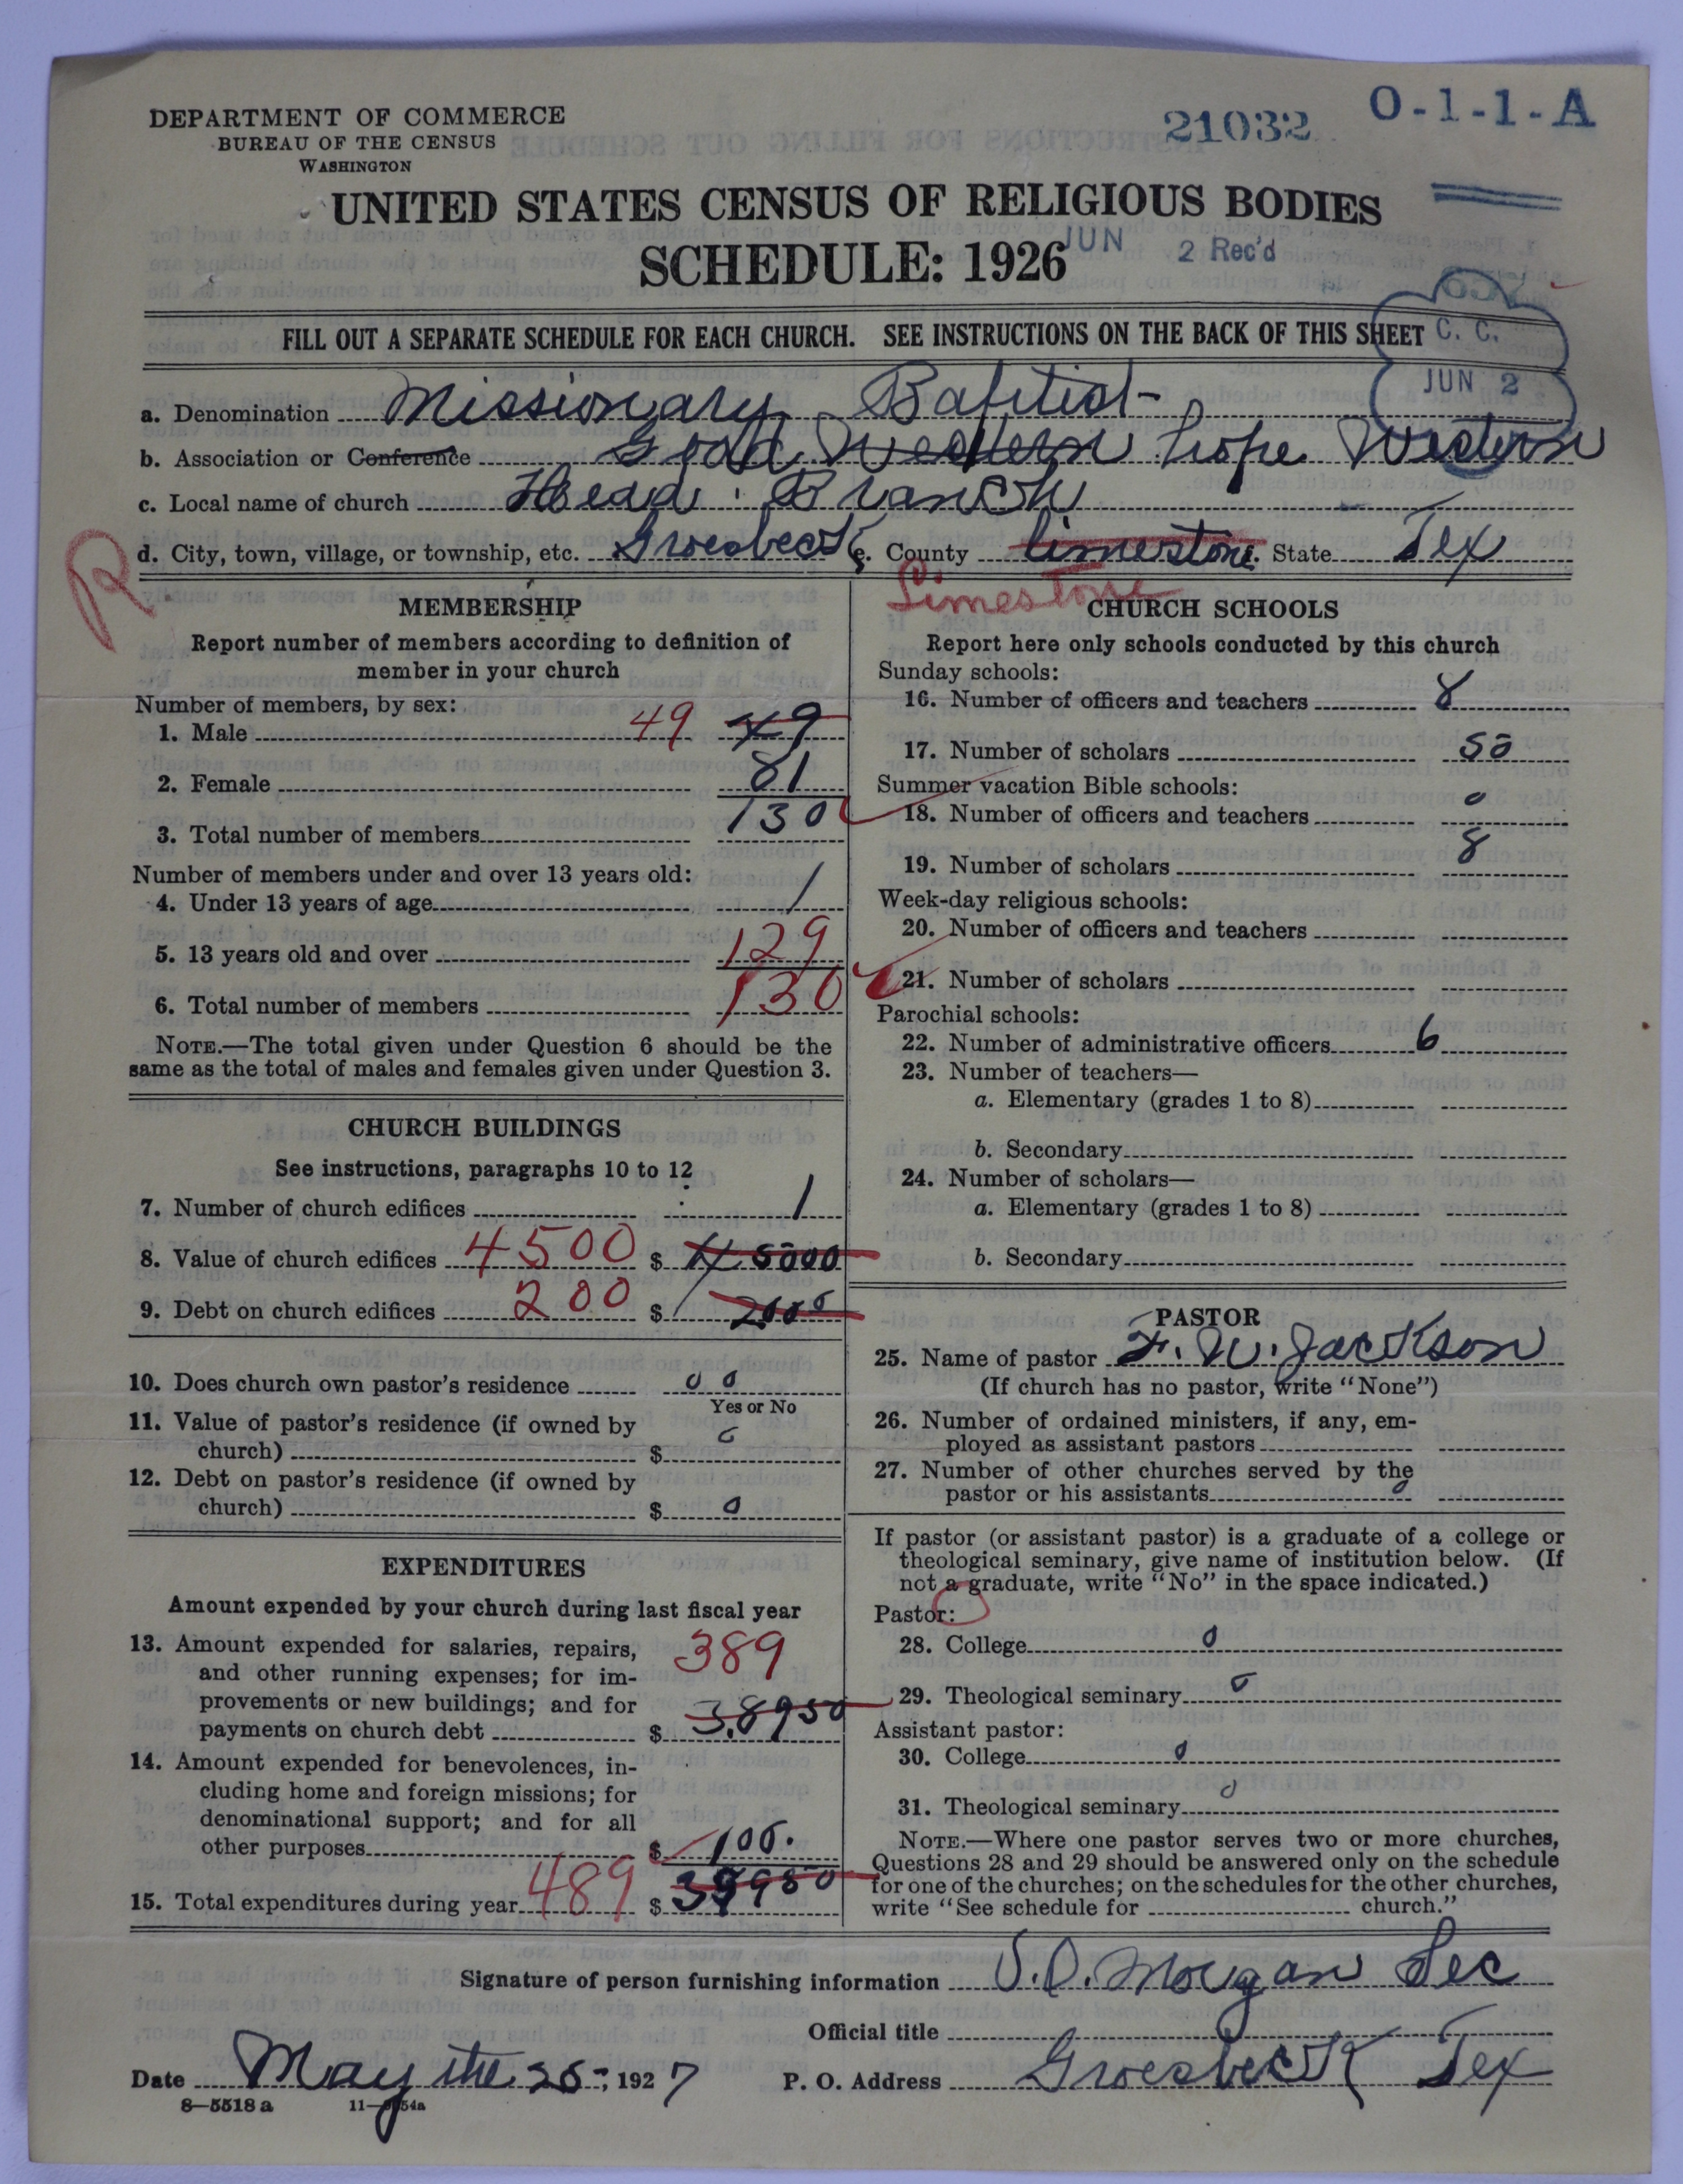 DEPARTMENT OF COMMERCE
BUREAU OF THE CENSUS
WASHINGTON
21032
O-1-1-A
UNITED STATES CENSUS OF RELIGIOUS BODIES
SCHEDULE: 1926
JUN 2 Rec'd
FILL OUT A SEPARATE SCHEDULE FOR EACH CHURCH. SEE INSTRUCTIONS ON THE BACK OF THIS SHEET
C. C.
JUN 2
a. Denomination Missionary Baptist
b. Association or Conference Good Western hope Western
c. Local name of church Head Branch
d. City, town, village, or township, etc. Groesbeck e. County Limestone State Tex
R
Limestone
MEMBERSHIP
Report number of members according to definition of
member in your church
Number of members, by sex:
1. Male 49 49
2. Female 81
3. Total number of members 130
Number of members under and over 13 years old:
4. Under 13 years of age 1
5. 13 years old and over 129
6. Total number of members 130
NOTE.—The total given under Question 6 should be the
same as the total of males and females given under Question 3.
CHURCH BUILDINGS
See instructions, paragraphs 10 to 12
7. Number of church edifices 1
8. Value of church edifices 4500 $ 45000
9. Debt on church edifices 200 $ 2000
10. Does church own pastor's residence 0 0
Yes or No
11. Value of pastor's residence (if owned by
church) $ 0
12. Debt on pastor's residence (if owned by
church) $ 0
EXPENDITURES
Amount expended by your church during last fiscal year
13. Amount expended for salaries, repairs,
and other running expenses; for im-
provements or new buildings; and for
payments on church debt 389 $ 38950
14. Amount expended for benevolences, in-
cluding home and foreign missions; for
denominational support; and for all
other purposes $ 100.
15. Total expenditures during year 489 $ 39950
CHURCH SCHOOLS
Report here only schools conducted by this church
Sunday schools:
16. Number of officers and teachers 8
17. Number of scholars 50
Summer vacation Bible schools:
18. Number of officers and teachers 0
19. Number of scholars 8
Week-day religious schools:
20. Number of officers and teachers
21. Number of scholars
Parochial schools:
22. Number of administrative officers 6
23. Number of teachers—
a. Elementary (grades 1 to 8)
b. Secondary
24. Number of scholars—
a. Elementary (grades 1 to 8)
b. Secondary
PASTOR
25. Name of pastor F. W. Jackson
(If church has no pastor, write "None")
26. Number of ordained ministers, if any, em-
ployed as assistant pastors
27. Number of other churches served by the
pastor or his assistants 0
If pastor (or assistant pastor) is a graduate of a college or
theological seminary, give name of institution below. (If
not a graduate, write "No" in the space indicated.)
Pastor:
28. College 0
29. Theological seminary 0
Assistant pastor:
30. College 0
31. Theological seminary 0
NOTE.—Where one pastor serves two or more churches,
Questions 28 and 29 should be answered only on the schedule
for one of the churches; on the schedules for the other churches,
write "See schedule for church."
Signature of person furnishing information Morgan Sec
Official title
Date May the 25, 1927 P. O. Address Groesbeck Tex
8—5518 a